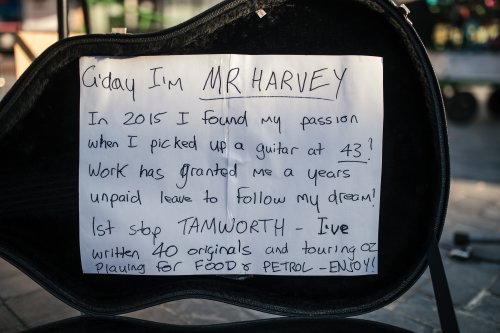 G'day I'm MR HARVEY
In 2015 I found my passion
when I picked up a guitar at 43?
Work has granted me a years
unpaid leave to follow my dream!
1st stop TAMWORTH - I've
written 40 originals and touring OZ
Playing for FOOD & PETROL - ENJOY!